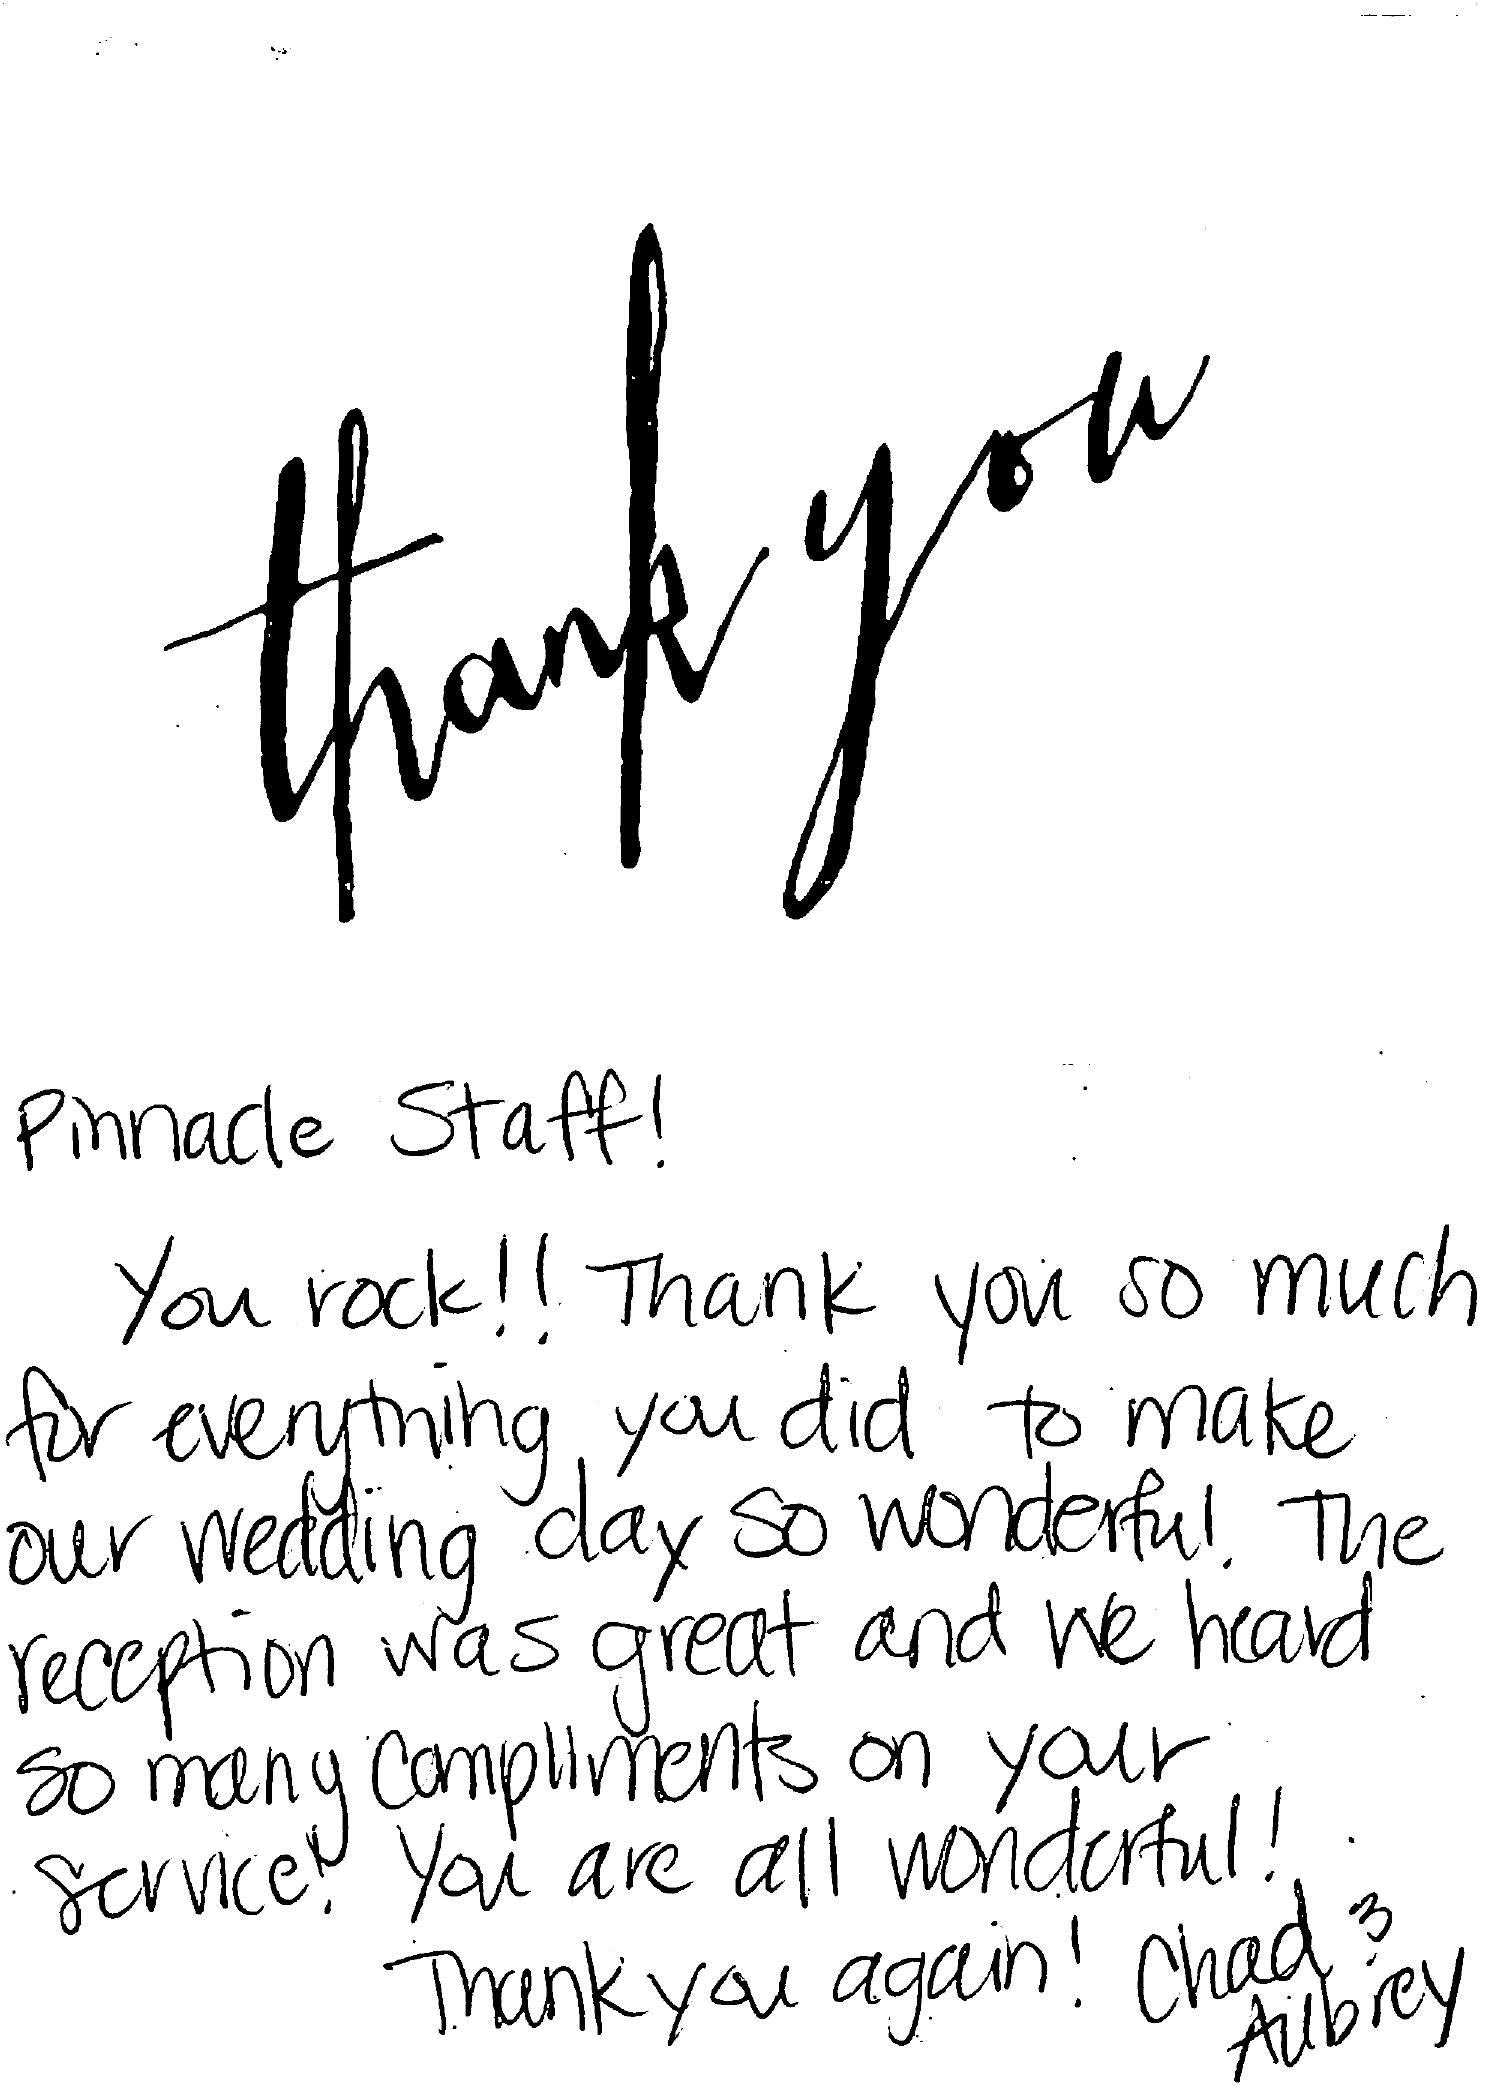 thank you
Pinnacle Staff!
You rock!! Thank you so much
for everything you did to make
our wedding day so wonderful. The
reception was great and we heard
so many compliments on your
service! You are all wonderful!
Thank you again! Chad &
Aubrey